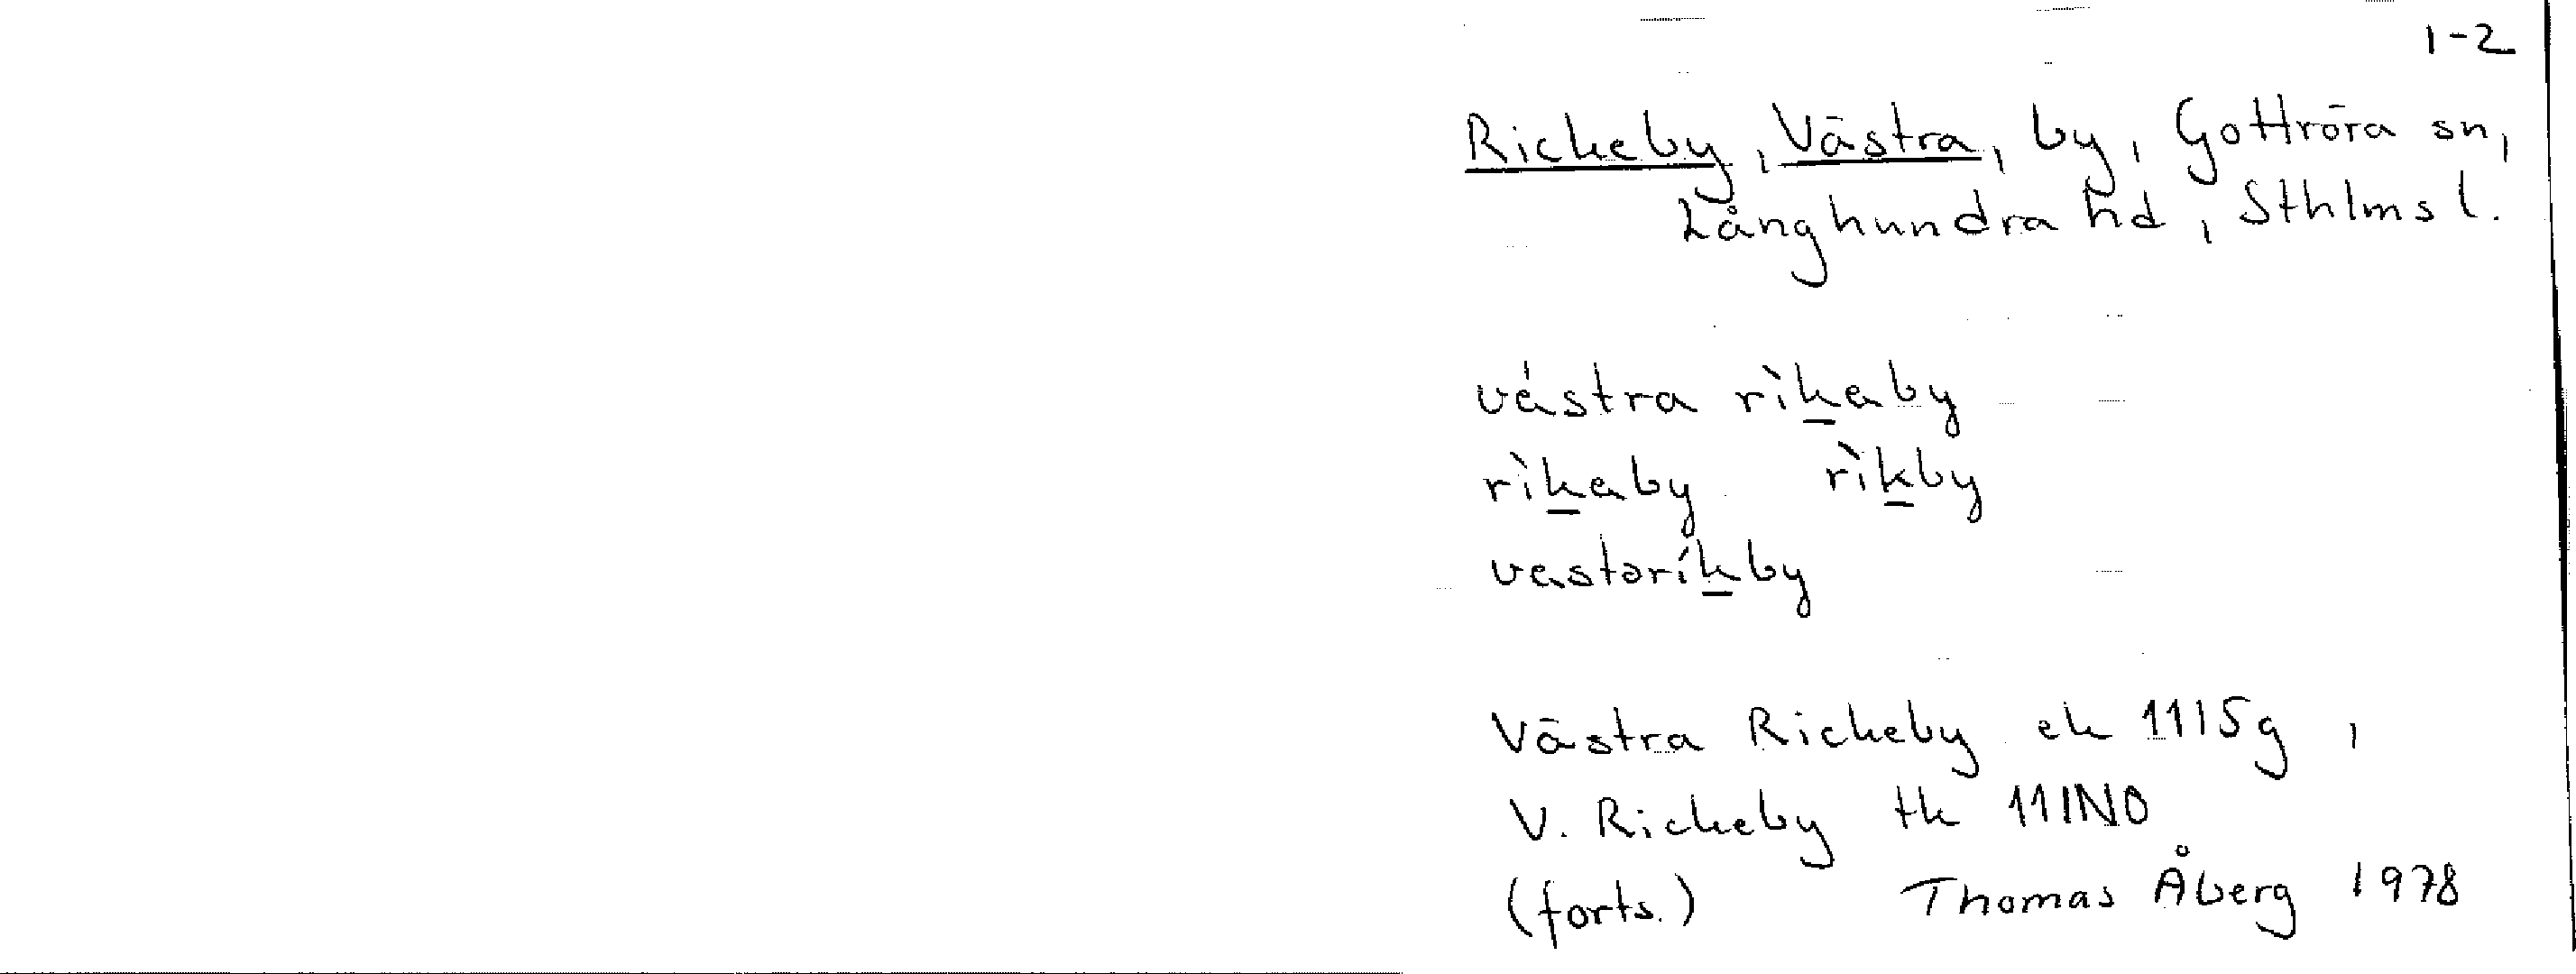 1-2
Rickeby, Västra, by, Gottröra sn,
Långhundra hd, Sthlms l.
västra rìkaby
rìkaby rìkby
vastəríkby
Västra Rickeby ek 11I5g,
V. Rickeby tk 11INO
(forts.) Thomas Åberg 1978